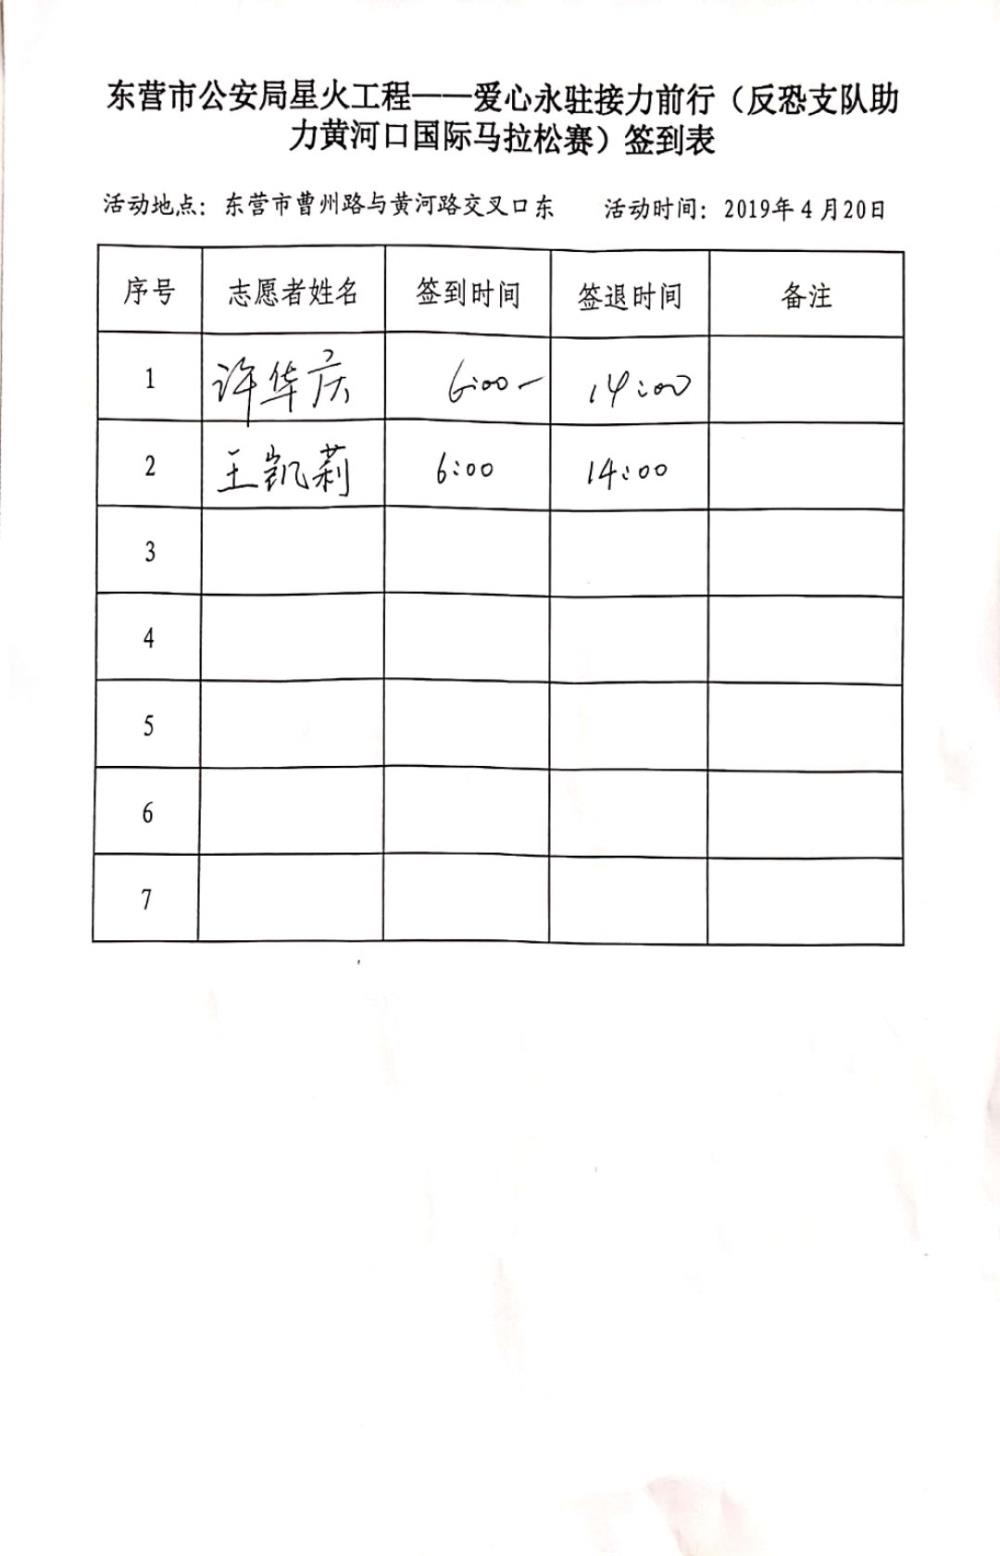 东营市公安局星火工程——爱心永驻接力前行（反恐支队助
力黄河口国际马拉松赛）签到表
活动地点：东营市曹州路与黄河路交叉口东 活动时间：2019年4月20日
序号 志愿者姓名 签到时间 签退时间 备注
1 许华庆 6:00- 14:00
2 王凯莉 6:00 14:00
3
4
5
6
7